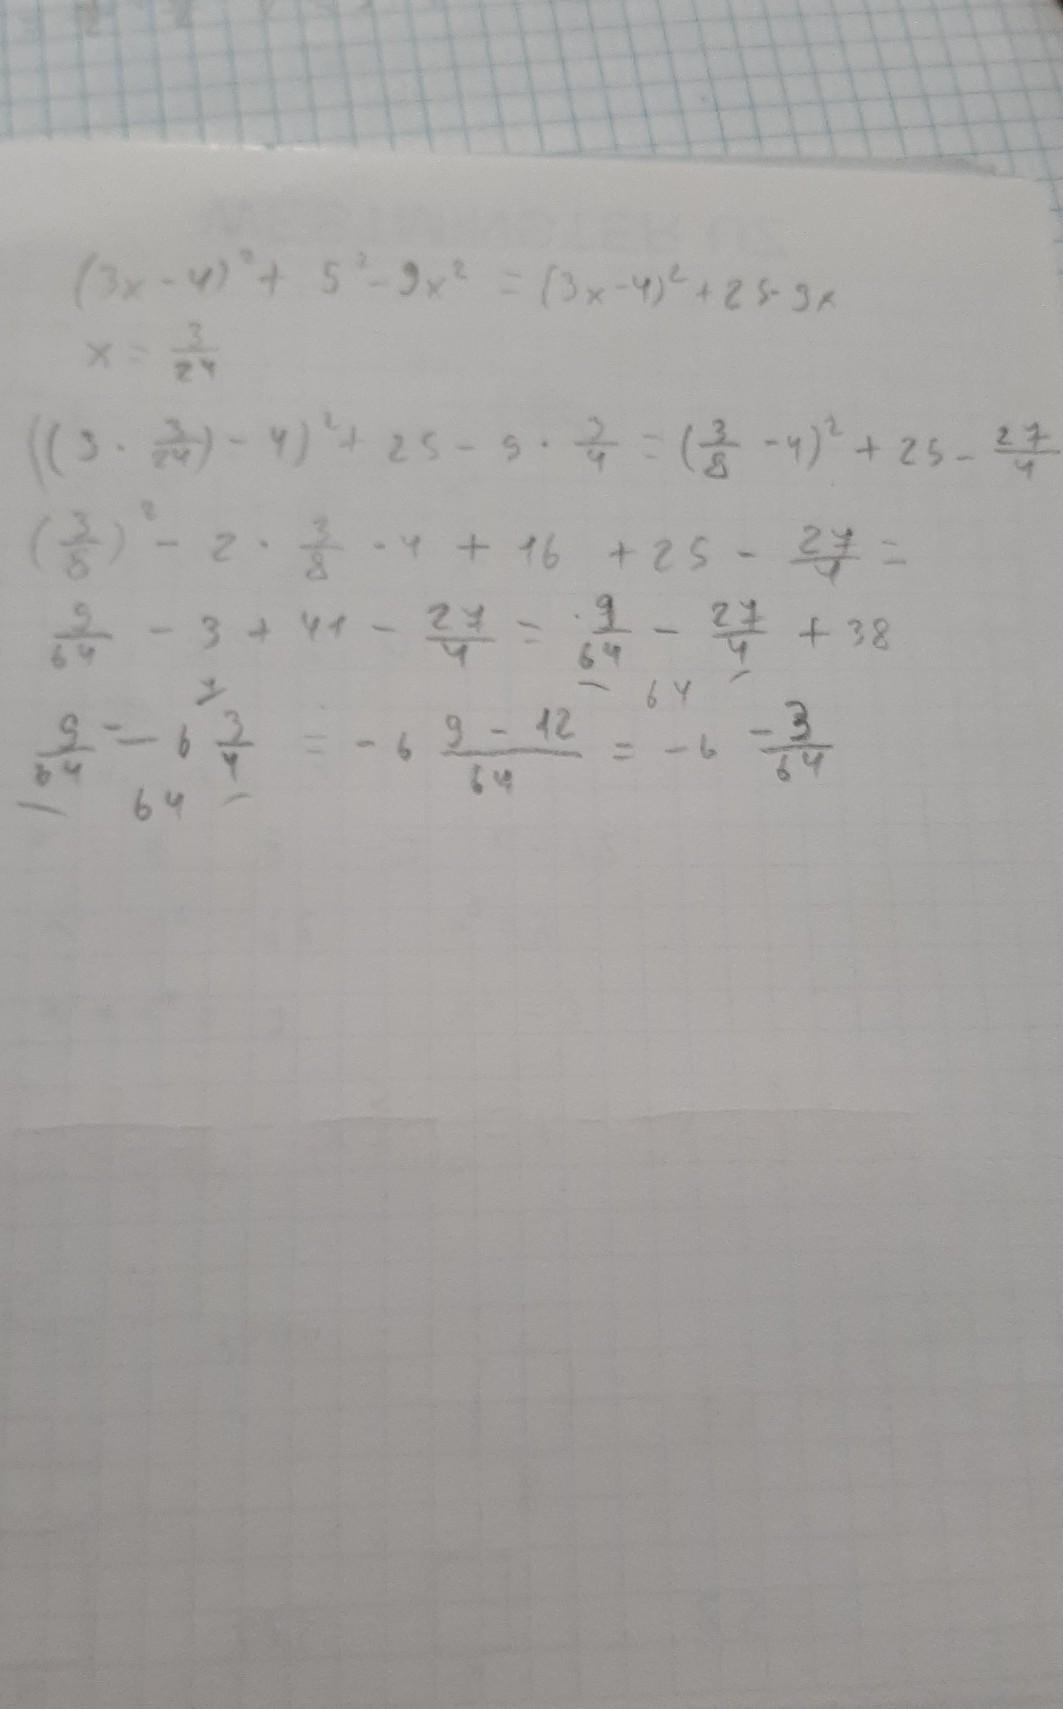 (3x-4)² + 5² - 9x² = (3x-4)² + 25 - 9x
x = 3/24
((3 · 3/24) - 4)² + 25 - 9 · 3/4 = (3/8 - 4)² + 25 - 27/4
(3/8)² - 2 · 3/8 · 4 + 16 + 25 - 27/4 =
9/64 - 3 + 41 - 27/4 = 9/64 - 27/4 + 38
64
9/64 - 6 3/4 = -6 (9 - 12)/64 = -6 -3/64
64